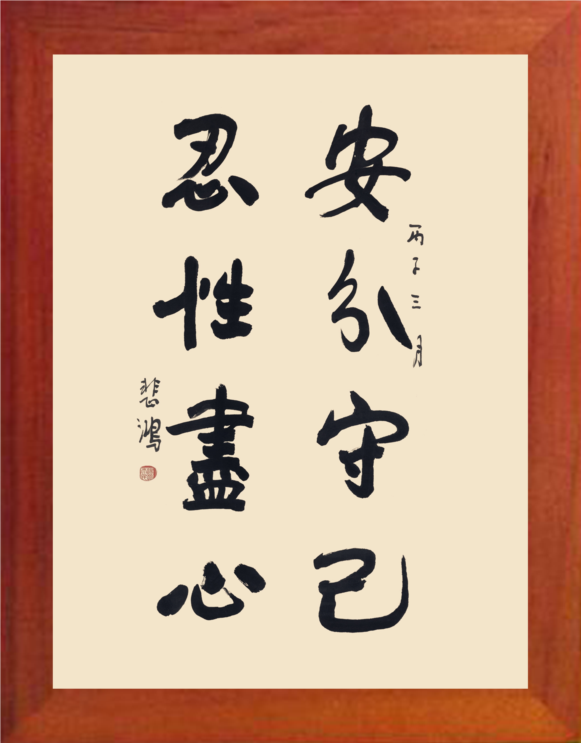 安分守己
丙子三月
忍性盡心
悲鴻